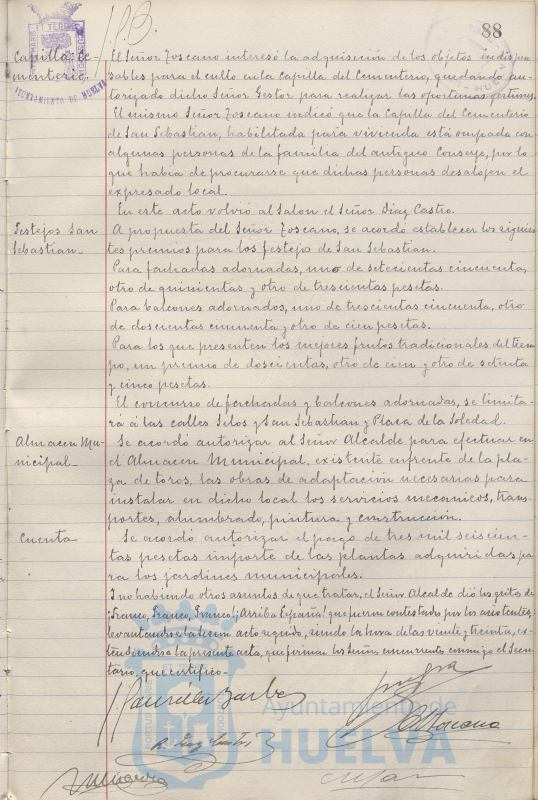 88
AYUNTAMIENTO DE HUELVA
Capilla Ce-
menterio.
El Señor Toscano interesó la adquisición de los objetos indispen
sables para el culto en la Capilla del Cementerio, quedando au-
torizado dicho Señor Gestor para realizar las oportunas gestiones.
El mismo Señor Toscano indicó que la Capilla del Cementerio
de San Sebastian, habilitada para vivienda está ocupada con
algunas personas de la familia del antiguo Conserje, por lo
que habia de procurarse que dichas personas desalojen el
expresado local.
En este acto volvió al Salon el Señor Diaz Castro.
Festejos San
Sebastian_
A propuesta del Señor Toscano, se acordó establecer los siguien
tes premios para los festejos de San Sebastian.
Para fachadas adornadas, uno de setecientas cincuenta,
otro de quinientas y otro de trescientas pesetas.
Para balcones adornados, uno de trescientas cincuenta, otro
de doscientas cincuenta y otro de cien pesetas.
Para los que presenten los mejores frutos tradicionales del tiem
po, un premio de doscientas, otro de cien y otro de setenta
y cinco pesetas.
El concurso de fachadas y balcones adornados, se limita-
rá á las calles Silos y San Sebastian y Plaza de la Soledad.
Almacen Mu-
nicipal_
Se acordó autorizar al Señor Alcalde para efectuar en
el Almacen Municipal, existente enfrente de la pla-
za de toros, las obras de adaptación necesarias para
instalar en dicho local los servicios mecanicos, trans-
portes, alumbrado, pintura y construcción.
Cuenta
Se acordó autorizar el pago de tres mil seiscien-
tas pesetas importe de las plantas adquiridas pa
ra los jardines municipales.
Y no habiendo otros asuntos de que tratar, el Señor Alcalde dió los gritos de
¡Franco, Franco, Franco! ¡Arriba España! que fueron contestados por los asistentes,
levantandose la sesion acto seguido, siendo la hora de las veinte y treinta, ex-
tendiendose la presente acta, que firman los Señores concurrentes conmigo el Secre-
tario, que certifico_
Ayuntamiento de
HUELVA